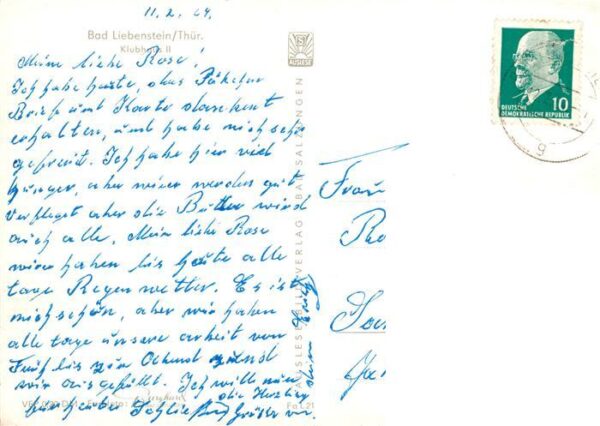 11.2.64.
Bad Liebenstein/Thür.
Klubhaus II
Meine liebe Rose!
Ich habe heute, das Päkchen
Brief und Karte dankent
erhalten, und habe mich sehr
gefreut. Ich habe hier viel
hunger, aber wier werden gut
verfleget aber die Butter wird
auch alle, Mein liebe Rose
wir haben bis heute alle
tage Regen wetter. Es ist
nicht schön, aber wir haben
alle tage unsere arbeit von
Früh bis zur Abend sind
wir ausgefüllt. Ich will nun
die Herzling
Schließen Grüße von
deinem
AUSLESE
AUSLESE-BILD-VERLAG BAD SALZUNGEN
Fa L 21
DEUTSCHE
DEMOKRATISCHE REPUBLIK
10
9
Frau
Ro